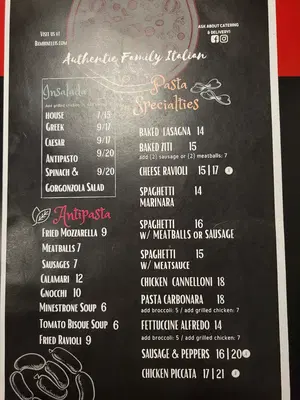 VISIT US @
BOOMBALLIS.COM
ASK ABOUT CATERING
& DELIVERY!
Authentic Family Italian
Insalada
HOUSE 7/15
GREEK 9/17
CAESAR 9/17
ANTIPASTO 9/20
SPINACH & 9/20
GORGONZOLA SALAD
Antipasta
FRIED MOZZARELLA 9
MEATBALLS 7
SAUSAGES 7
CALAMARI 12
GNOCCHI 10
MINESTRONE SOUP 6
TOMATO BISQUE SOUP 6
FRIED RAVIOLI 9
Pasta
Specialties
BAKED LASAGNA 14
BAKED ZITI 15
add (2) sausage or (2) meatballs: 7
CHEESE RAVIOLI 15|17
SPAGHETTI 14
MARINARA
SPAGHETTI 16
W/ MEATBALLS OR SAUSAGE
SPAGHETTI 15
W/ MEATSAUCE
CHICKEN CANNELLONI 18
PASTA CARBONARA 18
add broccoli: 5 / add grilled chicken: 7
FETTUCCINE ALFREDO 14
add broccoli: 5 / add grilled chicken: 7
SAUSAGE & PEPPERS 16|20
CHICKEN PICCATA 17|21